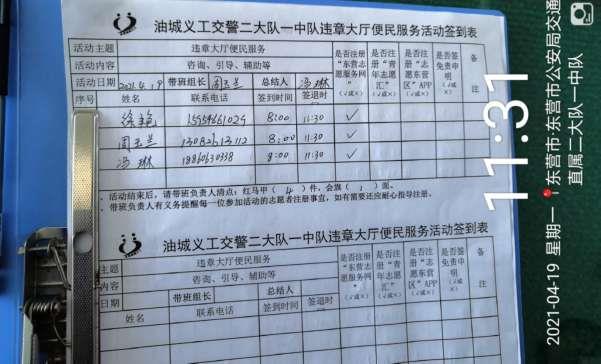 油城义工交警二大队一中队违章大厅便民服务活动签到表
活动主题 违章大厅便民服务 是否注册“东营志愿服务网”（√或×） 是否注册“青年志愿汇”（√或×） 是否注册“志愿东营区”APP（√或×） 是否签免责申明（√或×） 备注
活动内容 咨询、引导、辅助等
活动日期 2021.4.19 带班组长 周玉兰 总结人 冯琳
序号 姓名 联系电话 签到时间 签退时
徐艳 15954661029 8:00 11:30 √
周玉兰 8:00 11:30 √
冯琳 18860630338 8:00 11:30 √
活动结束后，请带班负责人清点：红马甲（4）件，会旗（1）面。
带班负责人有义务提醒每一位参加活动的志愿者注册事宜，如有需要还应耐心指导注册。
油城义工交警二大队一中队违章大厅便民服务活动签到表
主题 违章大厅便民服务 是否注册“东营志愿服务网”（√或×） 是否注册“青年志愿汇”（√或×） 是否注册“志愿东营区”APP（√或×） 是否签免责申明（√或×） 备注
内容 咨询、引导、辅助等
日期 带班组长 总结人
姓名 联系电话 签到时间 签退时
11:31
2021-04-19 星期一 东营市·东营市公安局交通
直属二大队一中队